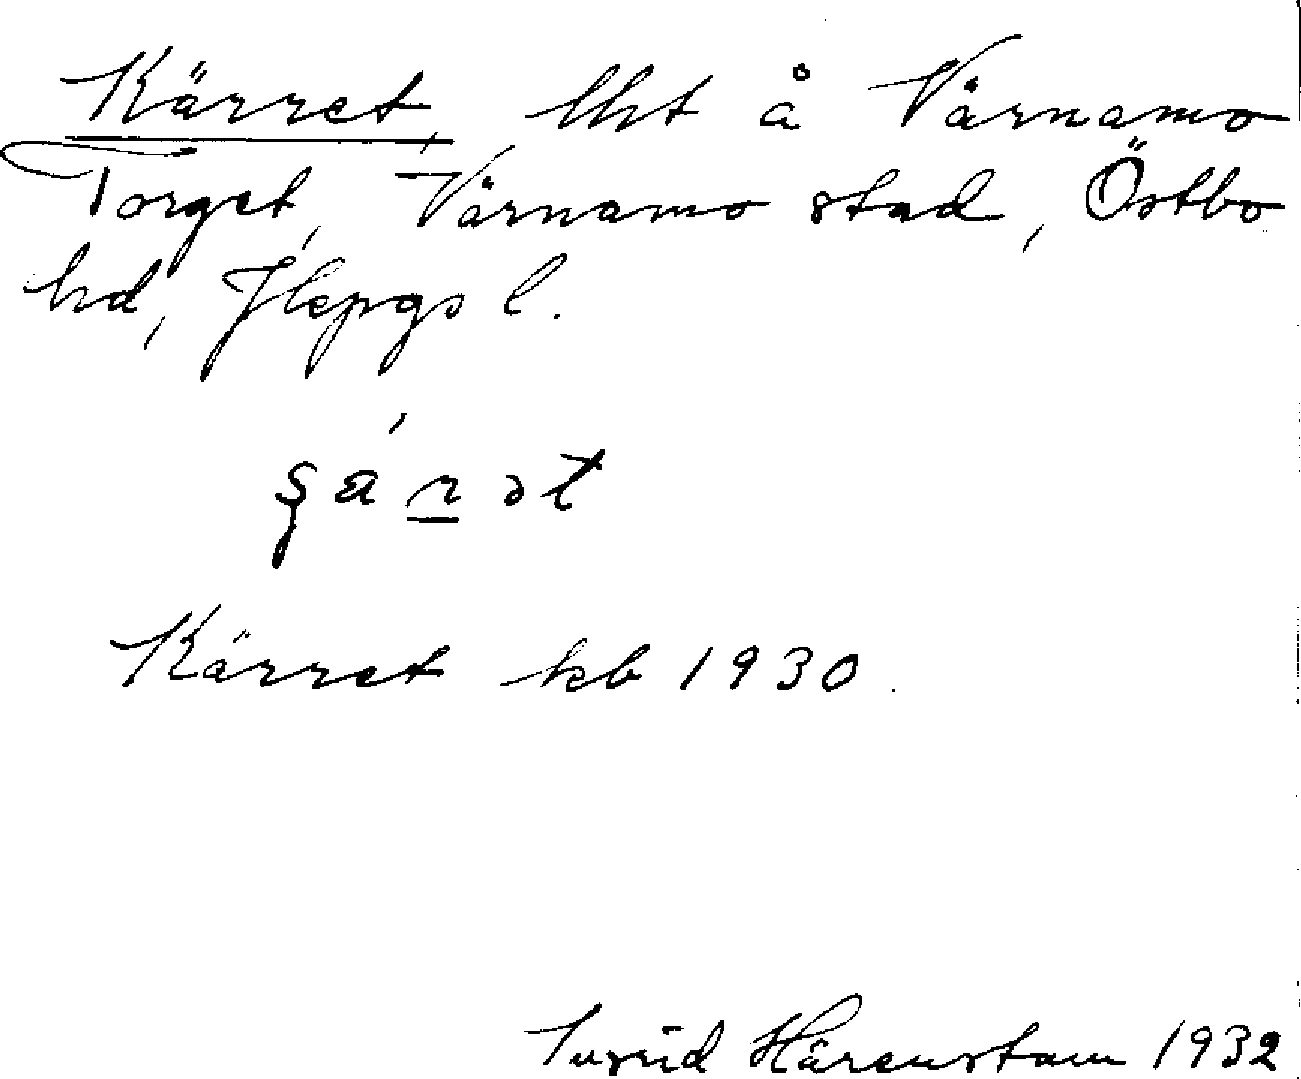 Kärret, lht å Värnamo
Torget, Värnamo stad, Östbo
hd, Jkpgs l.
Kärret kb 1930.
Ingrid Härenstam 1932